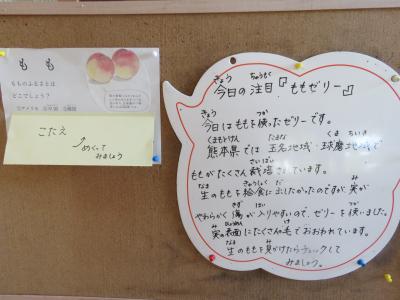 もも
もものふるさとは
どこでしょう?
こたえ
めくって
みましょう
きょう ちゅうもく
今日の注目『ももゼリー』
きょう つか
今日はももを使ったゼリーです。
くまもとけん たまな くま ちいき
熊本県では玉名地域・球磨地域で
さいばい
ももがたくさん栽培されています。
なま きゅうしょく だ み
生のももを給食に出したかったのですが、実が
きず はい つか
やわらかく傷が入りやすいので、ゼリーを使いました。
み ひょうめん け
実の表面にたくさんの毛でおおわれています。
なま み
生のももを見かけたらチェックして
みましょう。